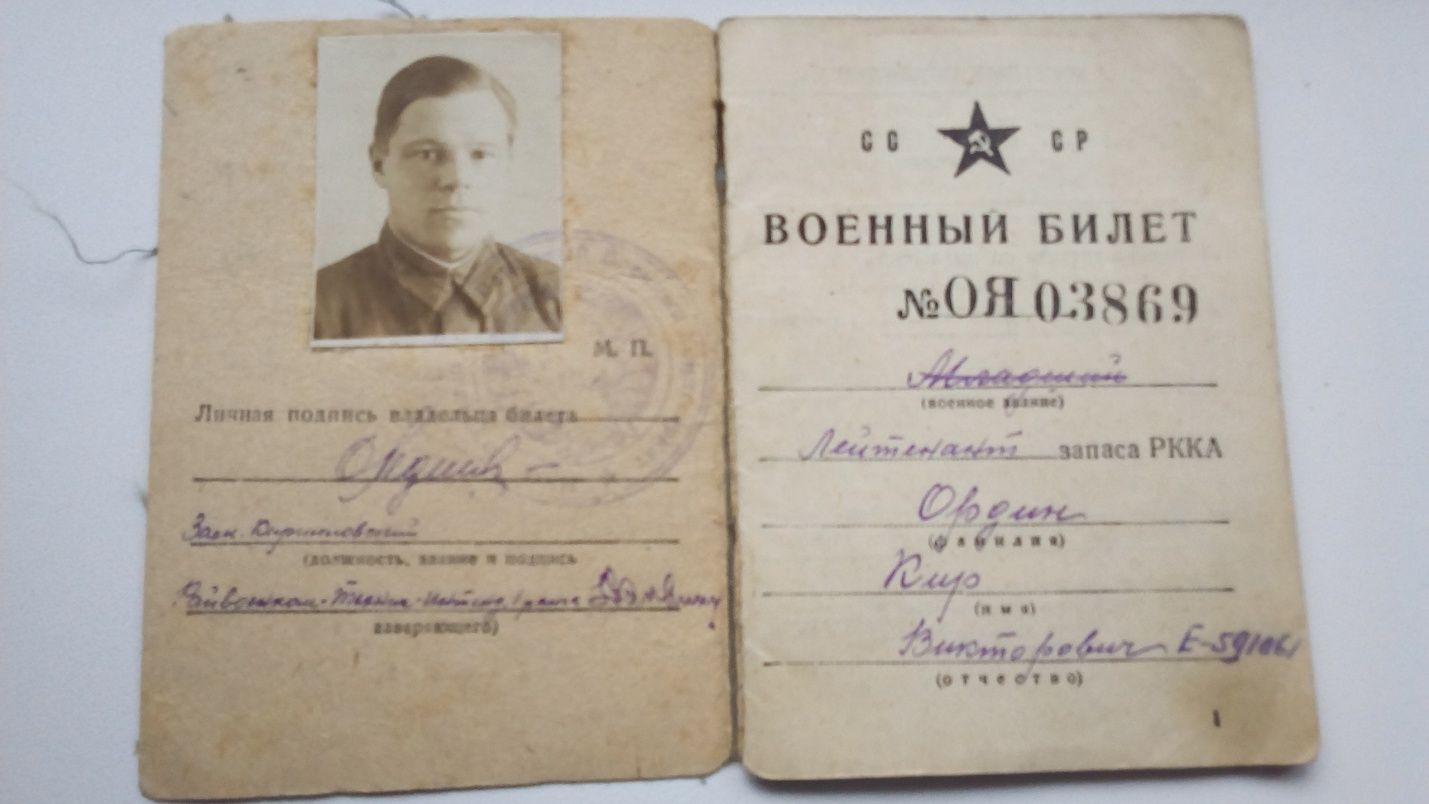 М. П.
Личная подпись владельца билета
(должность, звание и подпись
заверяющего)
СС СР
ВОЕННЫЙ БИЛЕТ
№ОЯ 03869
Младший
(военное звание)
Лейтенант запаса РККА
Ордин
(фамилия)
Кир
(имя)
Викторович Е-591061
(отчество)
1